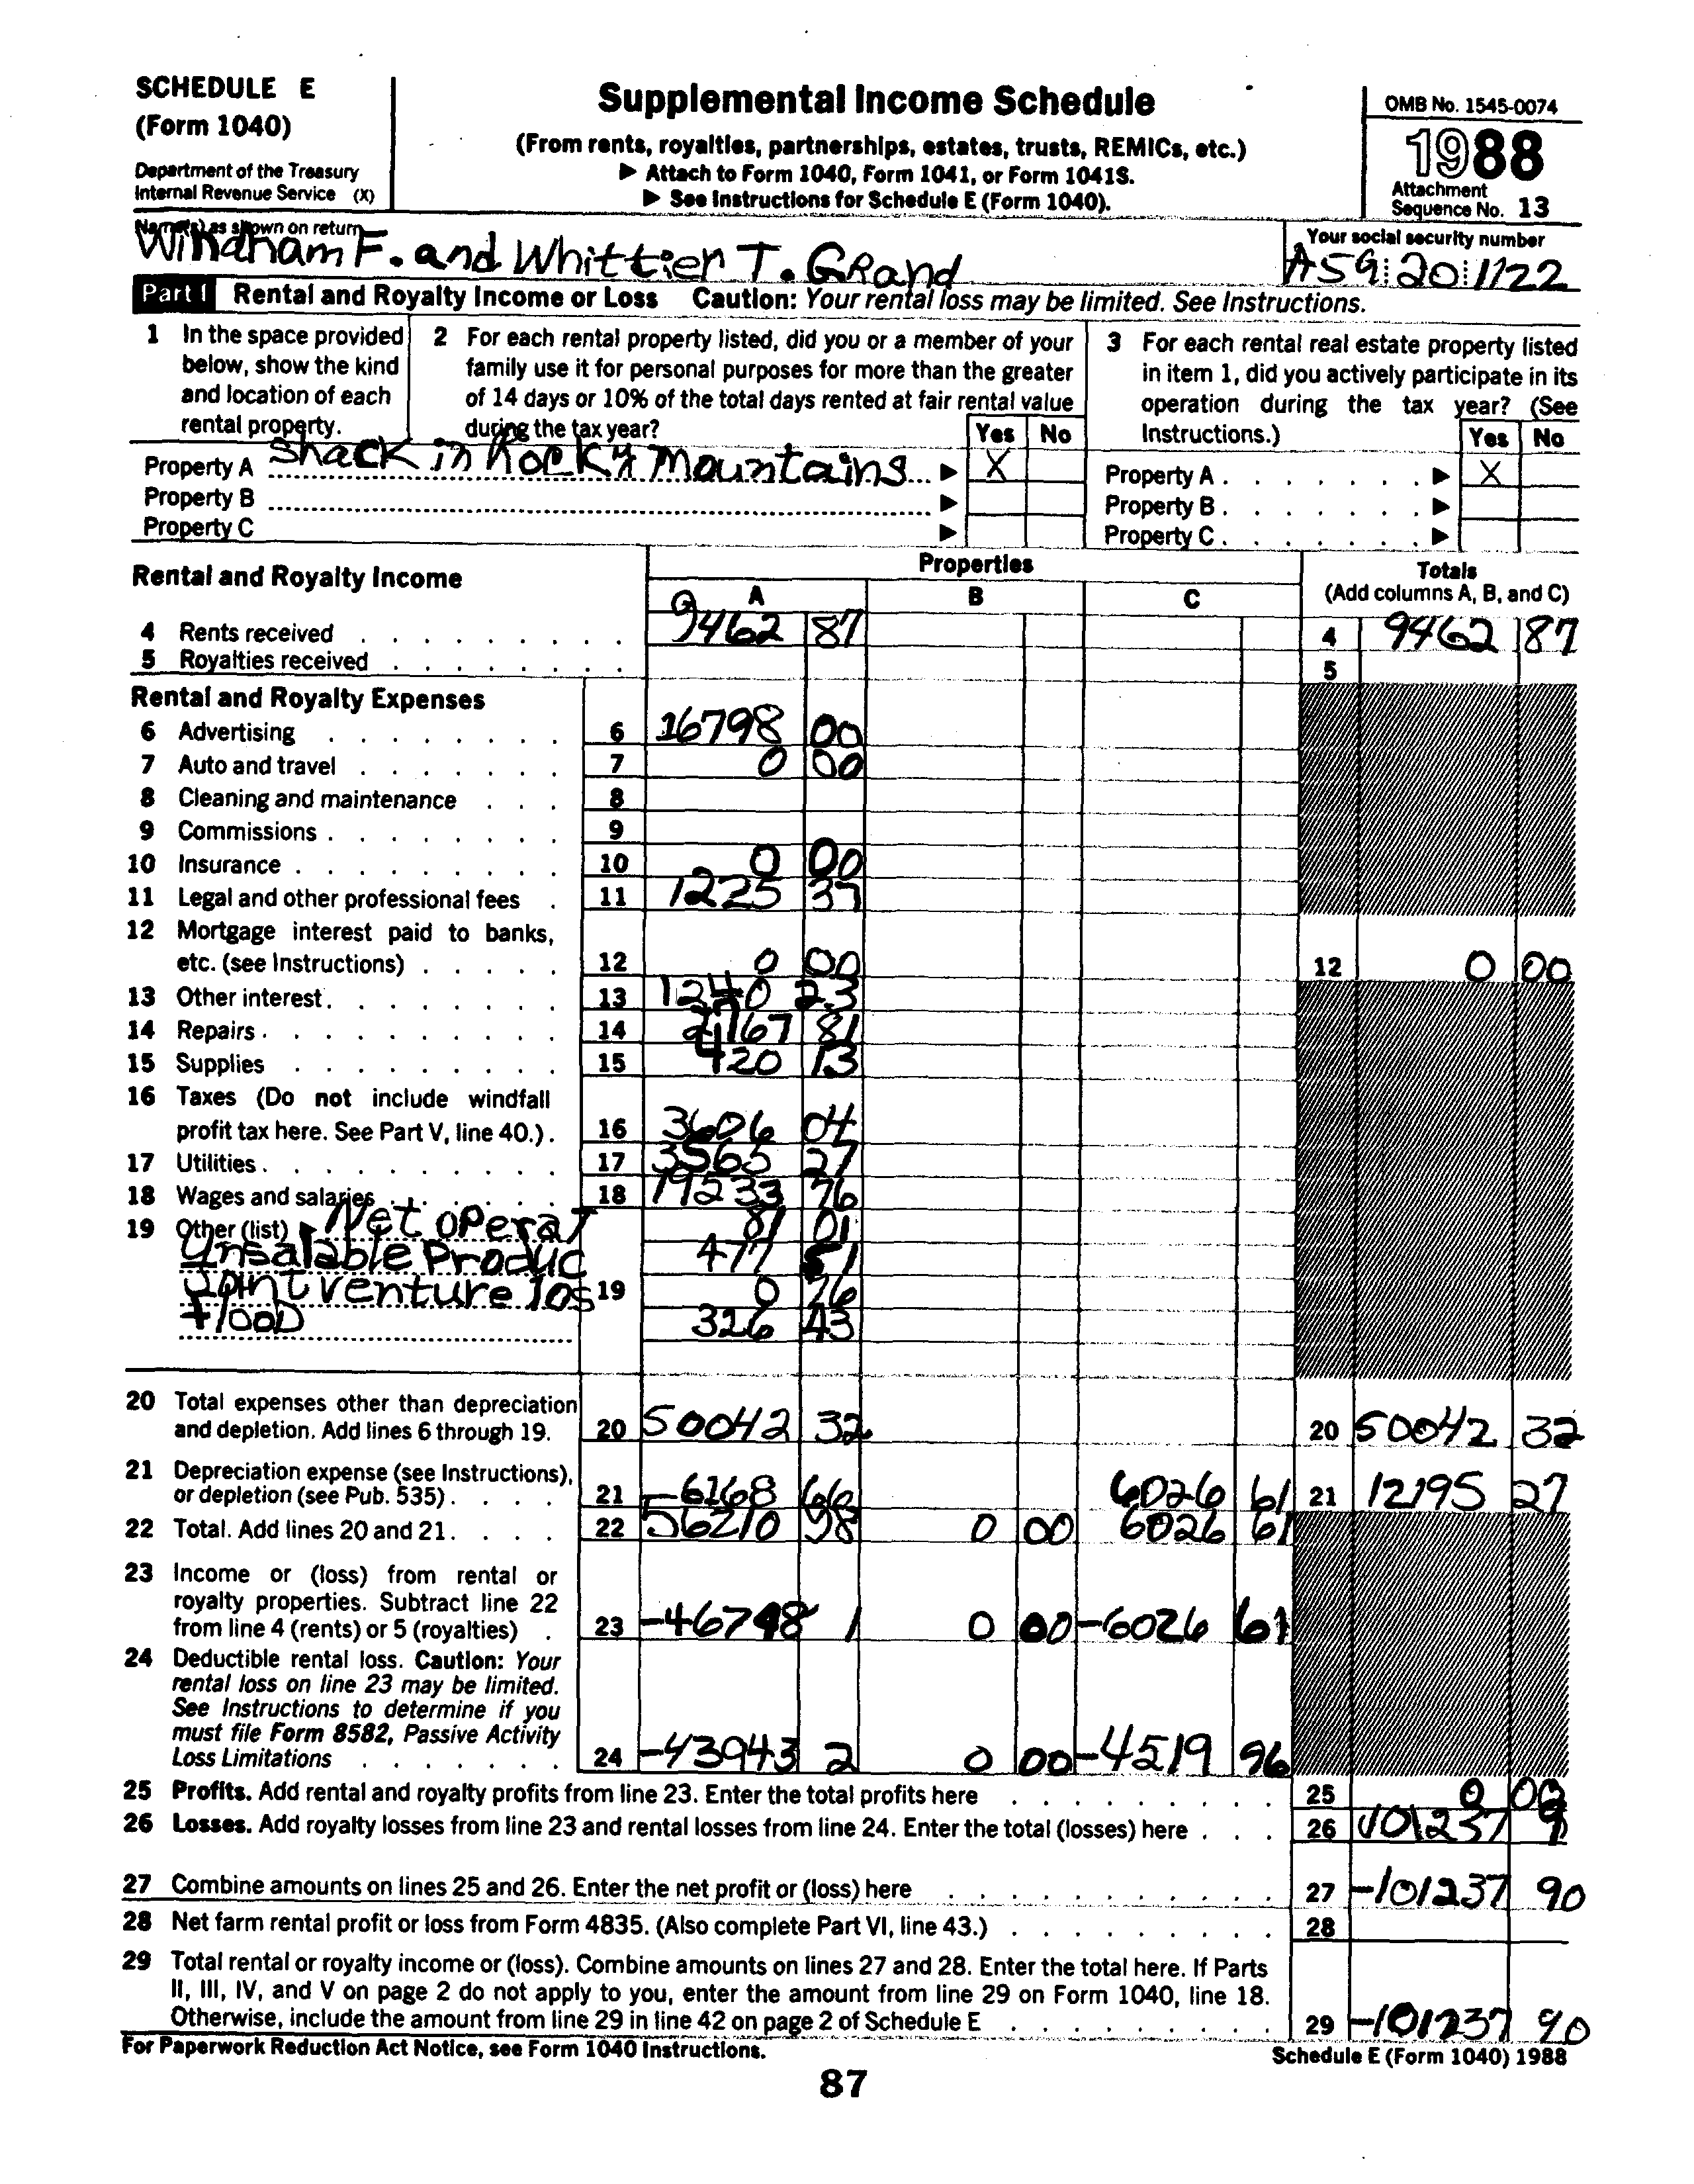 SCHEDULE E
(Form 1040)
Department of the Treasury
Internal Revenue Service (X)
Supplemental Income Schedule
(From rents, royalties, partnerships, estates, trusts, REMICs, etc.)
▶ Attach to Form 1040, Form 1041, or Form 1041S.
▶ See Instructions for Schedule E (Form 1040).
OMB No. 1545-0074
1988
Attachment
Sequence No. 13
Name(s) as shown on return
Windham F. and Whittier T. Grand
Your social security number
A59 20 1122
Part I Rental and Royalty Income or Loss Caution: Your rental loss may be limited. See Instructions.
1 In the space provided
below, show the kind
and location of each
rental property.
2 For each rental property listed, did you or a member of your
family use it for personal purposes for more than the greater
of 14 days or 10% of the total days rented at fair rental value
during the tax year? Yes No
3 For each rental real estate property listed
in item 1, did you actively participate in its
operation during the tax year? (See
Instructions.) Yes No
Property A Shack in Rocky Mountains ▶ X Property A ▶ X
Property B ▶ Property B ▶
Property C ▶ Property C ▶
Rental and Royalty Income
Properties
A B C
Totals
(Add columns A, B, and C)
4 Rents received 9462 87 4 9462 87
5 Royalties received 5
Rental and Royalty Expenses
6 Advertising 6 16798 00
7 Auto and travel 7 0 00
8 Cleaning and maintenance 8
9 Commissions 9
10 Insurance 10 0 00
11 Legal and other professional fees 11 1225 37
12 Mortgage interest paid to banks,
etc. (see Instructions) 12 0 00 12 0 00
13 Other interest 13 1240 23
14 Repairs 14 81
15 Supplies 15 420 13
16 Taxes (Do not include windfall
profit tax here. See Part V, line 40.) 16 3606 04
17 Utilities 17 3565 27
18 Wages and salaries 18 19233 76
19 Other (list) ▶ Net operat 81 01
Unsalable Produc 477
Joint venture los 19 0 76
flood 326 43
20 Total expenses other than depreciation
and depletion. Add lines 6 through 19. 20 50042 32 20 50042 32
21 Depreciation expense (see Instructions),
or depletion (see Pub. 535) 21 6168 66 6026 61 21 12195 27
22 Total. Add lines 20 and 21 22 56210 98 0 00 6026 61
23 Income or (loss) from rental or
royalty properties. Subtract line 22
from line 4 (rents) or 5 (royalties) 23 -46748 1 0 00 -6026 61
24 Deductible rental loss. Caution: Your
rental loss on line 23 may be limited.
See Instructions to determine if you
must file Form 8582, Passive Activity
Loss Limitations 24 -43943 2 0 00 -4519 96
25 Profits. Add rental and royalty profits from line 23. Enter the total profits here 25 0 00
26 Losses. Add royalty losses from line 23 and rental losses from line 24. Enter the total (losses) here 26 101237 9
27 Combine amounts on lines 25 and 26. Enter the net profit or (loss) here 27 -101237 90
28 Net farm rental profit or loss from Form 4835. (Also complete Part VI, line 43.) 28
29 Total rental or royalty income or (loss). Combine amounts on lines 27 and 28. Enter the total here. If Parts
II, III, IV, and V on page 2 do not apply to you, enter the amount from line 29 on Form 1040, line 18.
Otherwise, include the amount from line 29 in line 42 on page 2 of Schedule E 29 -101237 90
For Paperwork Reduction Act Notice, see Form 1040 Instructions.
Schedule E (Form 1040) 1988
87